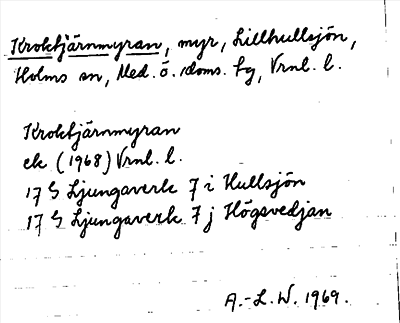 Kroktjärnmyran, myr, Lillhullsjön,
Holms sn, Med. ö. doms. fg, Vrnl. l.
Kroktjärnmyran
ek (1968) Vrnl. l.
17 G Ljungaverk 7 i Hullsjön
17 G Ljungaverk 7 j Högsvedjan
A.-L. W. 1969.